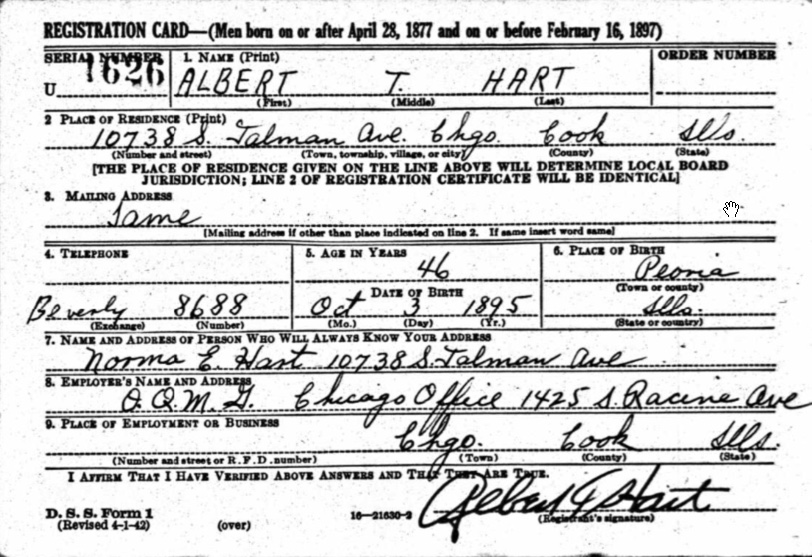 REGISTRATION CARD—(Men born on or after April 28, 1877 and on or before February 16, 1897)
SERIAL NUMBER 1. NAME (Print) ORDER NUMBER
U 1626 ALBERT T. HART
(First) (Middle) (Last)
2 PLACE OF RESIDENCE (Print)
10738 S. Talman Ave. Chgo. Cook Ills.
(Number and street) (Town, township, village, or city) (County) (State)
[THE PLACE OF RESIDENCE GIVEN ON THE LINE ABOVE WILL DETERMINE LOCAL BOARD
JURISDICTION; LINE 2 OF REGISTRATION CERTIFICATE WILL BE IDENTICAL]
3. MAILING ADDRESS
Same
[Mailing address if other than place indicated on line 2. If same insert word same]
4. TELEPHONE 5. AGE IN YEARS 6. PLACE OF BIRTH
46 Peoria
DATE OF BIRTH (Town or county)
Beverly 8688 Oct 3 1895 Ills.
(Exchange) (Number) (Mo.) (Day) (Yr.) (State or country)
7. NAME AND ADDRESS OF PERSON WHO WILL ALWAYS KNOW YOUR ADDRESS
Norma E. Hart 10738 S. Talman Ave
8. EMPLOYER'S NAME AND ADDRESS
O.Q.M.G. Chicago Office 1425 S. Racine Ave
9. PLACE OF EMPLOYMENT OR BUSINESS
Chgo. Cook Ills.
(Number and street or R. F. D. number) (Town) (County) (State)
I AFFIRM THAT I HAVE VERIFIED ABOVE ANSWERS AND THAT THEY ARE TRUE.
D. S. S. Form 1 Albert T Hart
(Revised 4-1-42) (over) 16—21630-2 (Registrant's signature)